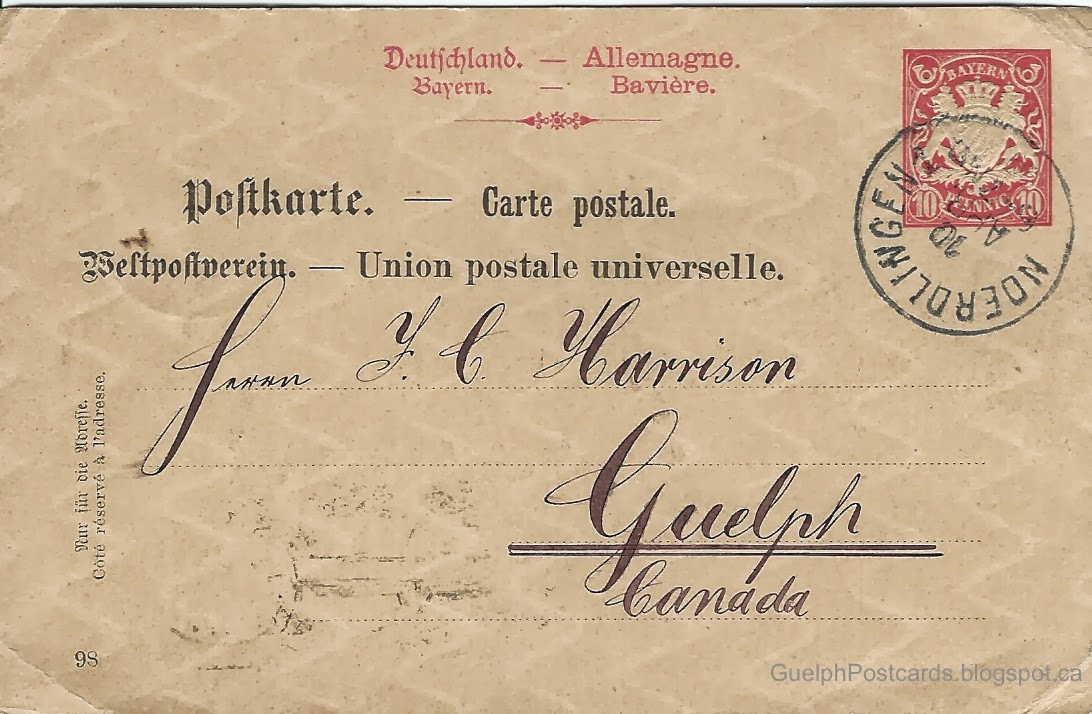 Deutschland. — Allemagne.
Bayern. — Bavière.
BAYERN
10 PFENNIG 10
NOERDLINGEN
10
Postkarte. — Carte postale.
Weltpostverein. — Union postale universelle.
Herrn J. C. Harrison
Guelph
Canada
Nur für die Adresse.
Côté réservé à l'adresse.
98
GuelphPostcards.blogspot.ca